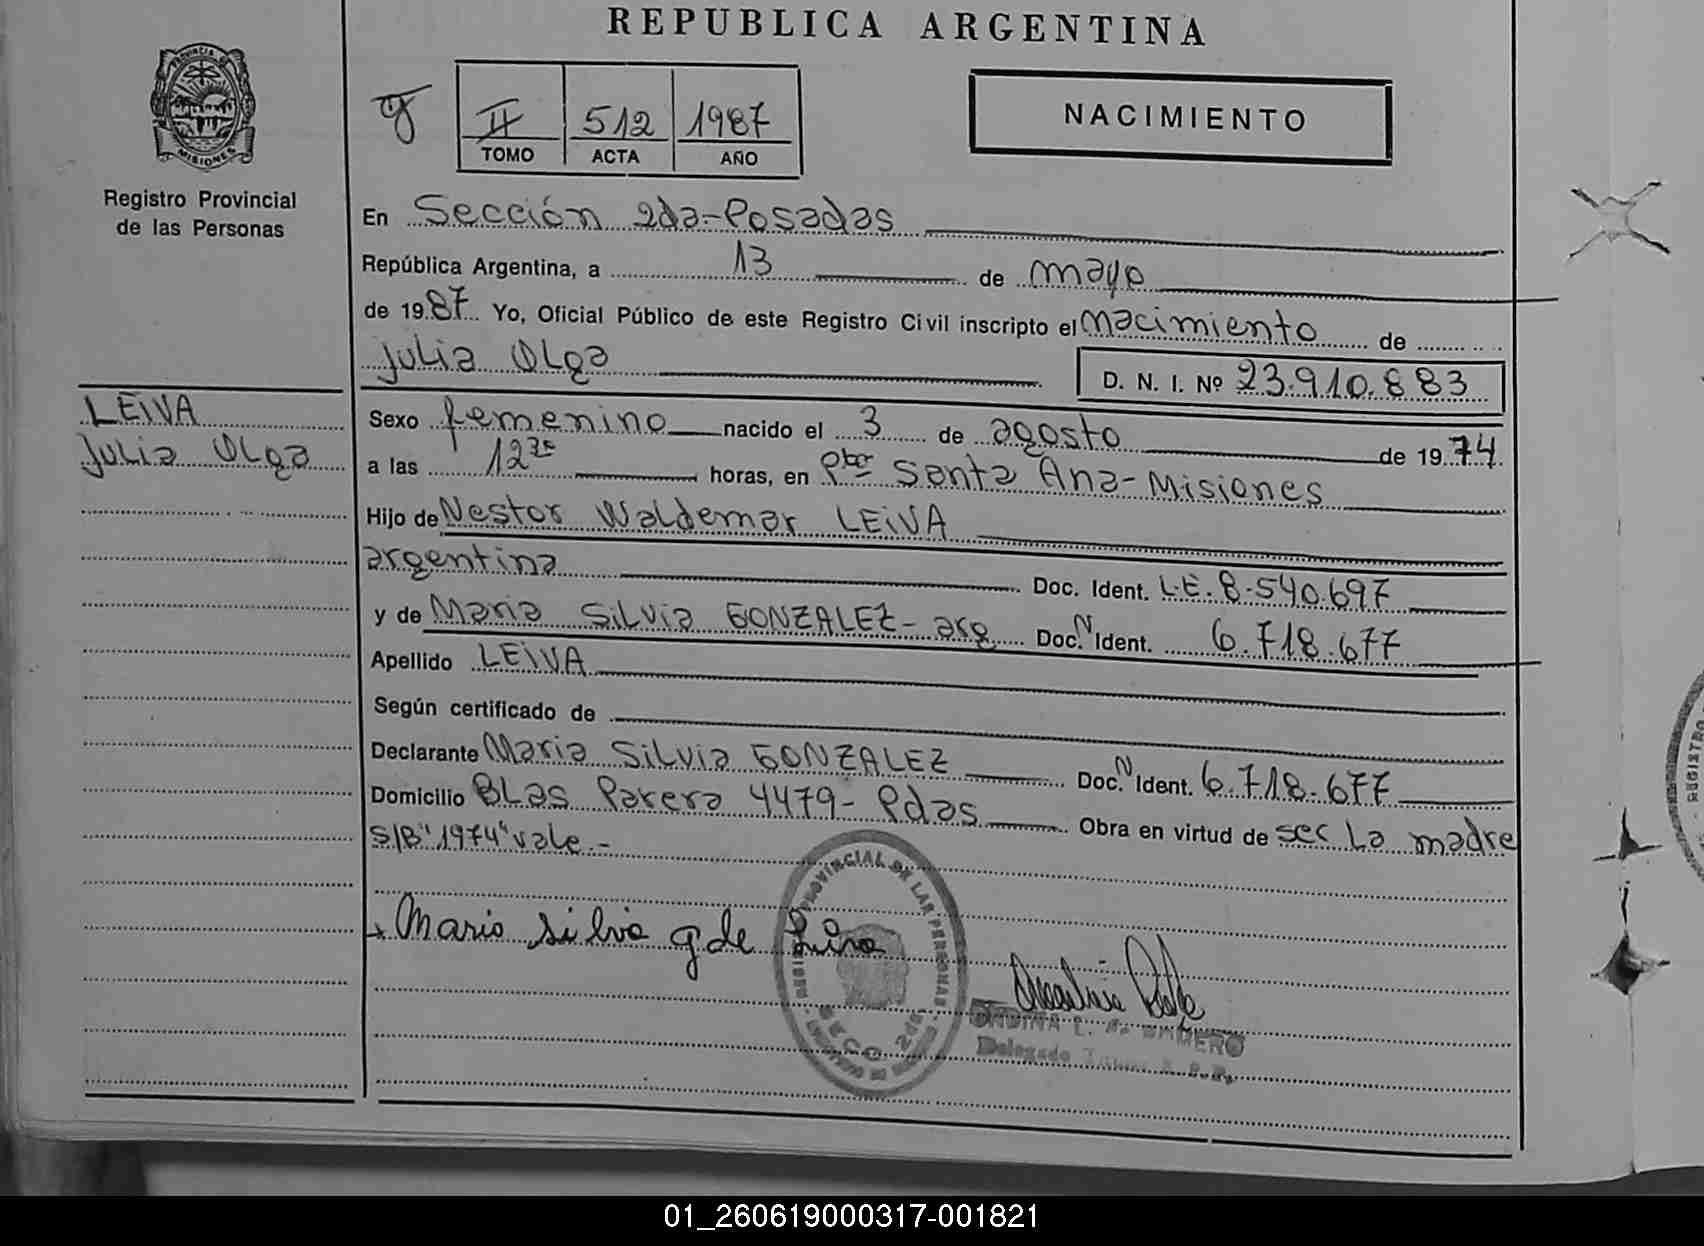 REPUBLICA ARGENTINA
PROVINCIA DE
MISIONES
Registro Provincial
de las Personas
II 512 1987
TOMO ACTA AÑO
NACIMIENTO
En Sección 2da-Posadas
República Argentina, a 13 de mayo
de 1987 Yo, Oficial Público de este Registro Civil inscripto el nacimiento de
Julia Olga
D. N. I. Nº 23.910.883
LEIVA
Julia Olga
Sexo femenino nacido el 3 de agosto de 1974
a las 12 horas, en Pto Santa Ana-Misiones
Hijo de Nestor Waldemar LEIVA
argentina Doc. Ident. L.E. 8.540.697
y de Maria Silvia GONZALEZ- arg Doc.N Ident. 6.718.677
Apellido LEIVA
Según certificado de
Declarante Maria Silvia GONZALEZ Doc.N Ident. 6.718.677
Domicilio BLas Parera 4479- Pdas Obra en virtud de ser La madre
S/B "1974" vale.-
Maria Silvia g de
PROVINCIAL DE LAS PERSONAS
SECC. 2da
Delegado
REGISTRO
01_260619000317-001821